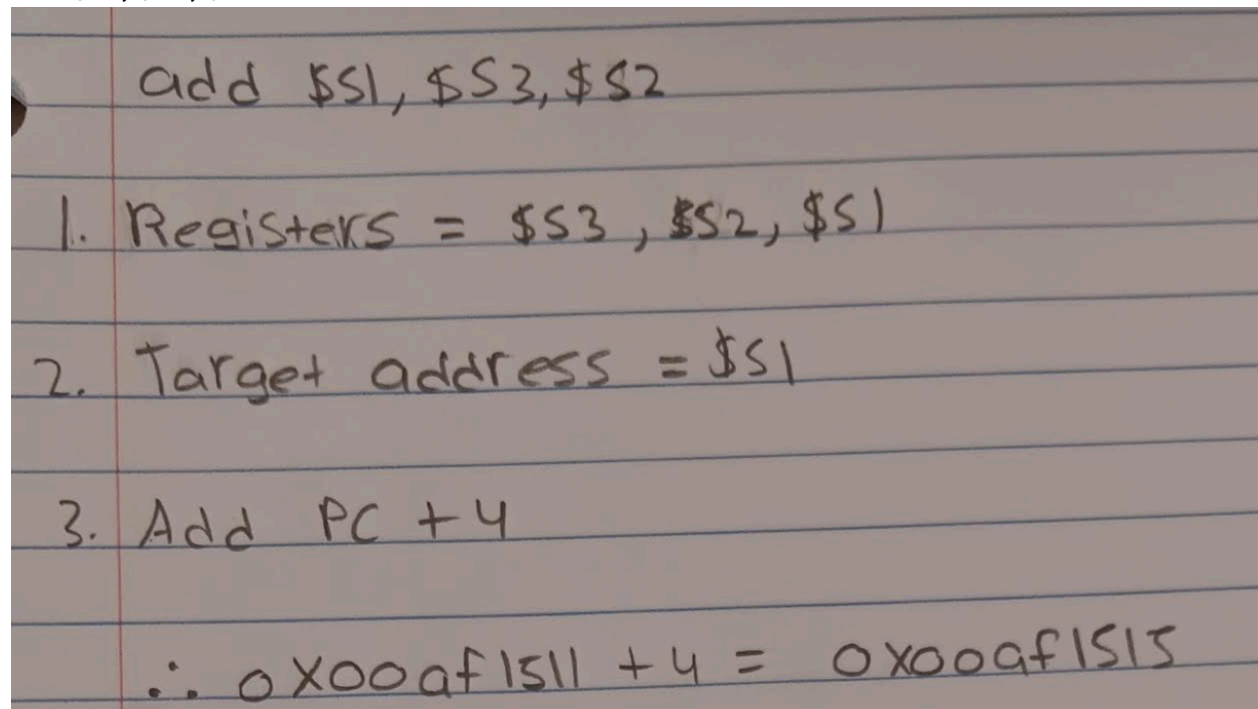 add $S1, $S3, $S2
1. Registers = $S3, $S2, $S1
2. Target address = $S1
3. Add PC + 4
∴ 0X00af1511 + 4 = 0X00af1515